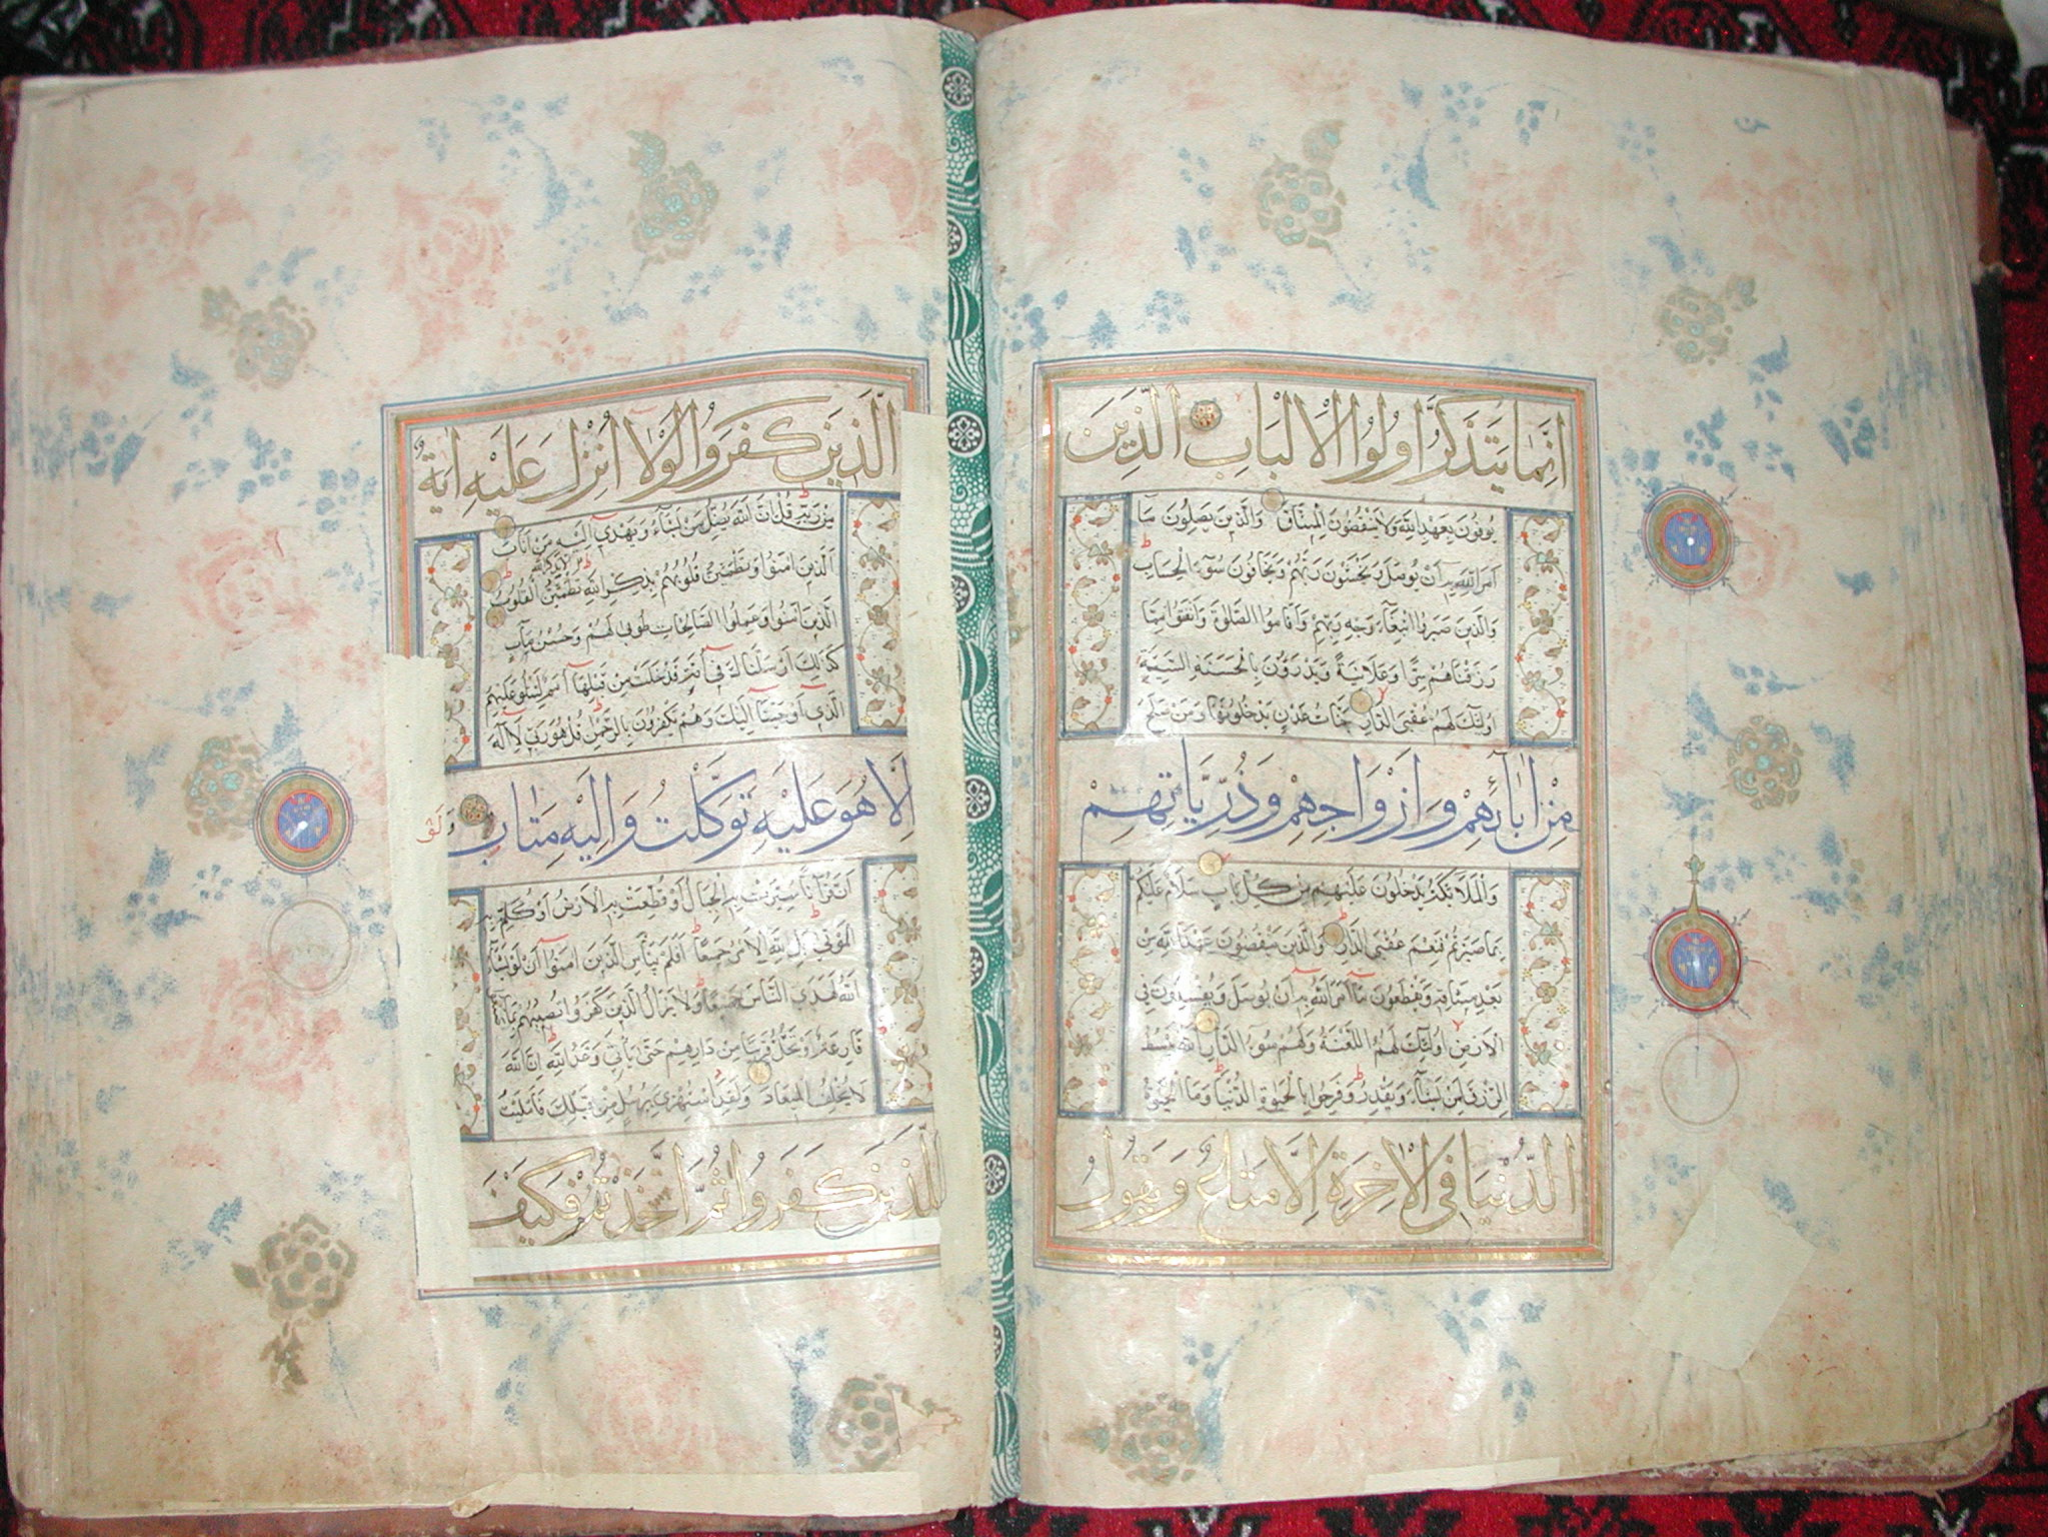 اِنَّمَا يَتَذَكَّرُ اُولُوا الْاَلْبَابِ الَّذِينَ
يُوفُونَ بِعَهْدِ اللَّهِ وَلَا يَنْقُضُونَ الْمِيثَاقَ وَالَّذِينَ يَصِلُونَ مَآ
اَمَرَ اللَّهُ بِهِ اَنْ يُوصَلَ وَيَخْشَوْنَ رَبَّهُمْ وَيَخَافُونَ سُوٓءَ الْحِسَابِ
وَالَّذِينَ صَبَرُوا ابْتِغَآءَ وَجْهِ رَبِّهِمْ وَاَقَامُوا الصَّلٰوةَ وَاَنْفَقُوا مِمَّا
رَزَقْنَاهُمْ سِرًّا وَعَلَانِيَةً وَيَدْرَؤُنَ بِالْحَسَنَةِ السَّيِّئَةَ
اُولٰٓئِكَ لَهُمْ عُقْبَى الدَّارِ جَنَّاتُ عَدْنٍ يَدْخُلُونَهَا وَمَنْ صَلَحَ
مِنْ اٰبَآئِهِمْ وَاَزْوَاجِهِمْ وَذُرِّيَّاتِهِمْ
وَالْمَلَآئِكَةُ يَدْخُلُونَ عَلَيْهِمْ مِنْ كُلِّ بَابٍ سَلَامٌ عَلَيْكُمْ
بِمَا صَبَرْتُمْ فَنِعْمَ عُقْبَى الدَّارِ وَالَّذِينَ يَنْقُضُونَ عَهْدَ اللَّهِ مِنْ
بَعْدِ مِيثَاقِهِ وَيَقْطَعُونَ مَآ اَمَرَ اللَّهُ بِهِ اَنْ يُوصَلَ وَيُفْسِدُونَ فِي
الْاَرْضِ اُولٰٓئِكَ لَهُمُ اللَّعْنَةُ وَلَهُمْ سُوٓءُ الدَّارِ اللَّهُ يَبْسُطُ
الرِّزْقَ لِمَنْ يَشَآءُ وَيَقْدِرُ وَفَرِحُوا بِالْحَيٰوةِ الدُّنْيَا وَمَا الْحَيٰوةُ
الدُّنْيَا فِي الْاٰخِرَةِ اِلَّا مَتَاعٌ وَيَقُولُ
الَّذِينَ كَفَرُوا لَوْلَآ اُنْزِلَ عَلَيْهِ اٰيَةٌ
مِنْ رَبِّهِ قُلْ اِنَّ اللَّهَ يُضِلُّ مَنْ يَشَآءُ وَيَهْدِيٓ اِلَيْهِ مَنْ اَنَابَ
الَّذِينَ اٰمَنُوا وَتَطْمَئِنُّ قُلُوبُهُمْ بِذِكْرِ اللَّهِ الا بذكر الله تَطْمَئِنُّ الْقُلُوبُ
الَّذِينَ اٰمَنُوا وَعَمِلُوا الصَّالِحَاتِ طُوبٰى لَهُمْ وَحُسْنُ مَاٰبٍ
كَذٰلِكَ اَرْسَلْنَاكَ فِيٓ اُمَّةٍ قَدْ خَلَتْ مِنْ قَبْلِهَآ اُمَمٌ لِتَتْلُوَ عَلَيْهِمُ
الَّذِيٓ اَوْحَيْنَآ اِلَيْكَ وَهُمْ يَكْفُرُونَ بِالرَّحْمٰنِ قُلْ هُوَ رَبِّي لَآ اِلٰهَ
اِلَّا هُوَ عَلَيْهِ تَوَكَّلْتُ وَاِلَيْهِ مَتَابِ وَلَوْ
اَنَّ قُرْاٰنًا سُيِّرَتْ بِهِ الْجِبَالُ اَوْ قُطِّعَتْ بِهِ الْاَرْضُ اَوْ كُلِّمَ بِهِ
الْمَوْتٰى بَلْ لِلَّهِ الْاَمْرُ جَمِيعًا اَفَلَمْ يَيْاَسِ الَّذِينَ اٰمَنُوٓا اَنْ لَوْ يَشَآءُ
اللَّهُ لَهَدَى النَّاسَ جَمِيعًا وَلَا يَزَالُ الَّذِينَ كَفَرُوا تُصِيبُهُمْ بِمَا
قَارِعَةٌ اَوْ تَحُلُّ قَرِيبًا مِنْ دَارِهِمْ حَتّٰى يَاْتِيَ وَعْدُ اللَّهِ اِنَّ اللَّهَ
لَا يُخْلِفُ الْمِيعَادَ وَلَقَدِ اسْتُهْزِئَ بِرُسُلٍ مِنْ قَبْلِكَ فَاَمْلَيْتُ
لِلَّذِينَ كَفَرُوا ثُمَّ اَخَذْتُهُمْ فَكَيْفَ